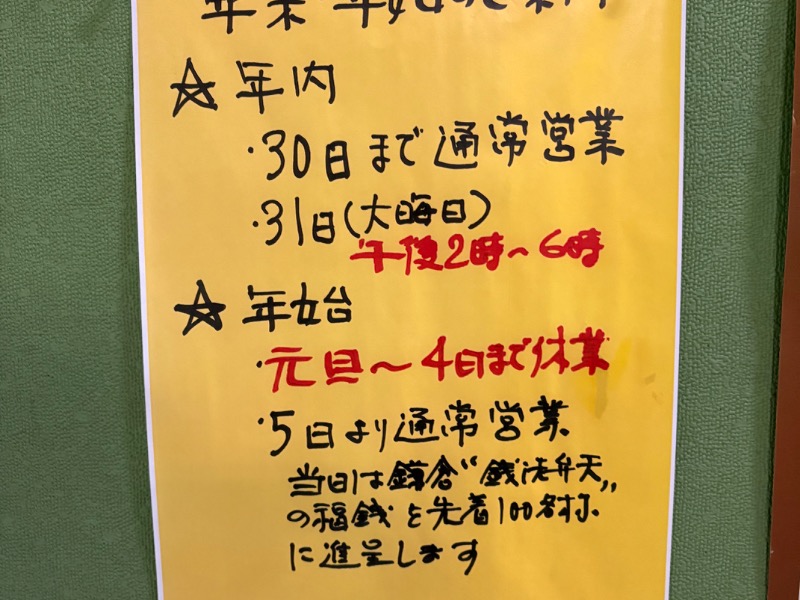 年末年始のご案内
☆年内
・30日まで通常営業
・31日(大晦日)
午後2時〜6時
☆年始
・元旦〜4日まで休業
・5日より通常営業
当日は鎌倉“銭洗弁天”
の福銭を先着100名様
に進呈します